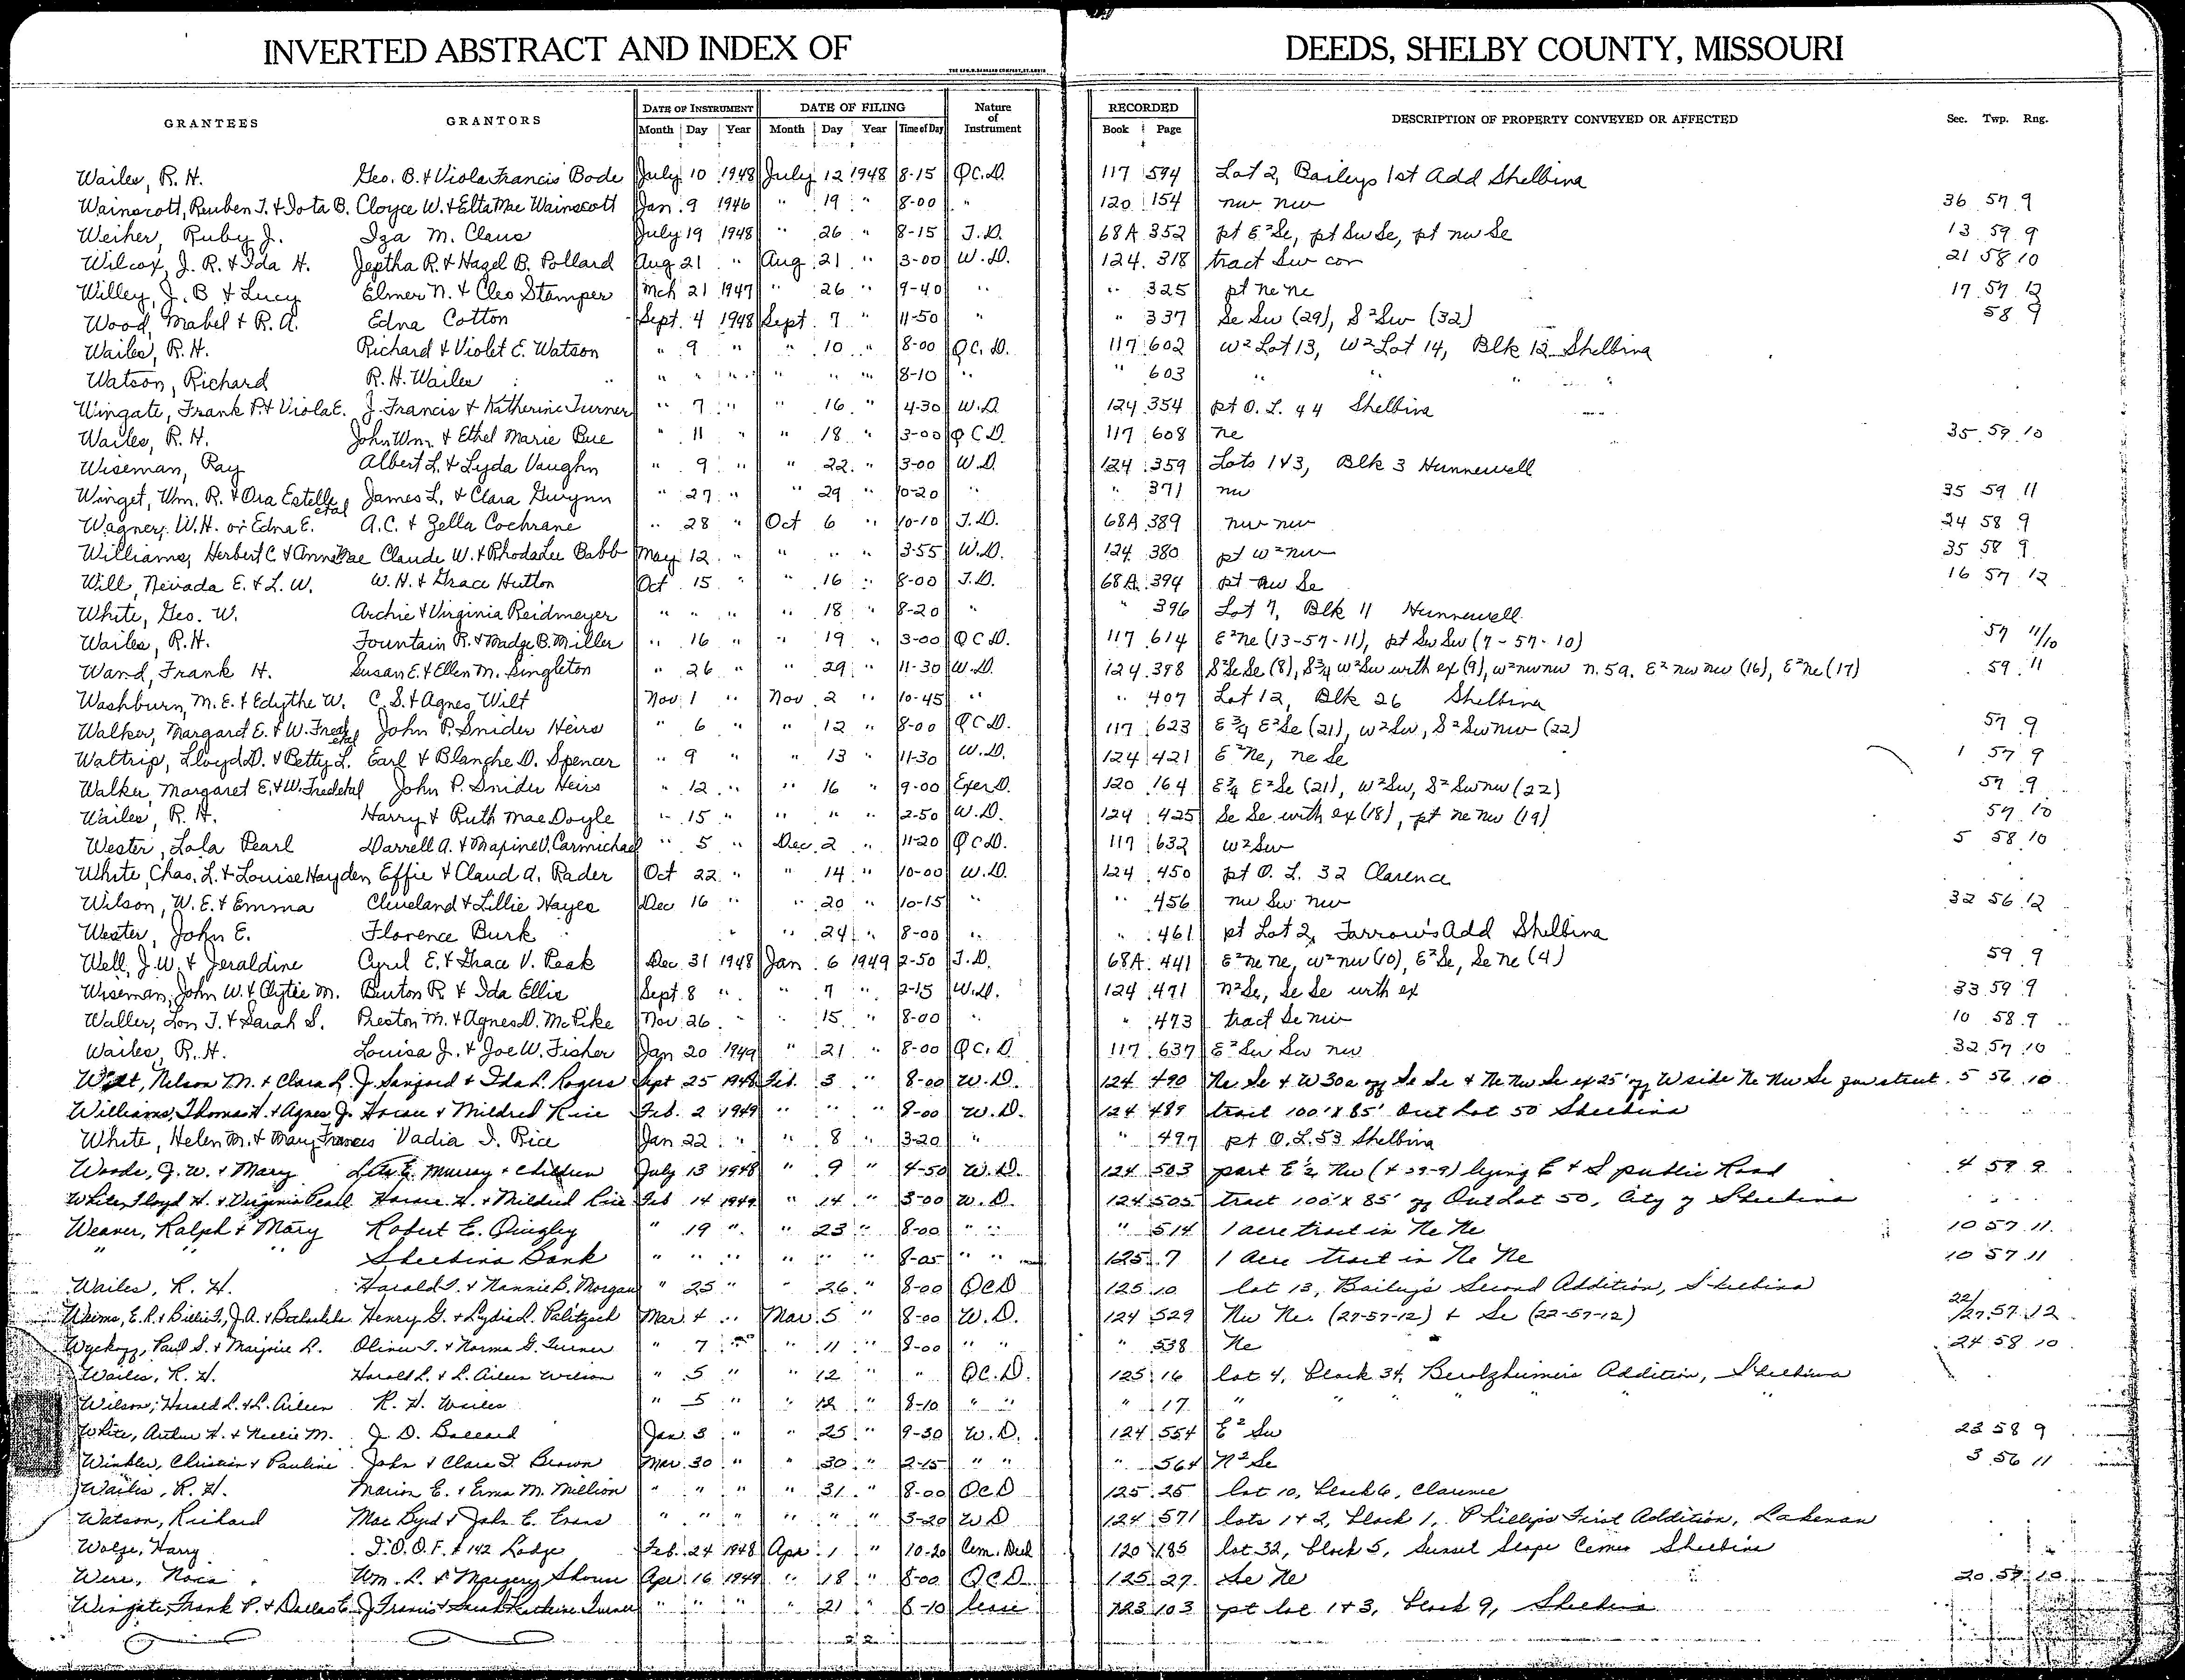 INVERTED ABSTRACT AND INDEX OF DEEDS, SHELBY COUNTY, MISSOURI
GRANTEES GRANTORS DATE OF INSTRUMENT DATE OF FILING Nature of Instrument RECORDED DESCRIPTION OF PROPERTY CONVEYED OR AFFECTED Sec. Twp. Rng.
Month Day Year Month Day Year Time of Day Book Page
Wailes, R. H. Geo. B. & Viola Francis Bode July 10 1948 July 12 1948 8-15 Q.C.D. 117 594 Lot 2, Baileys 1st Add Shelbina
Wainscott, Reuben T. & Iota B. Cloyce W. & Elta Mae Wainscott Jan. 9 1946 " 19 " 8-00 " 120 154 nw nw 36 57 9
Weiher, Ruby J. Iza M. Claus July 19 1948 " 26 " 8-15 T.D. 68A 352 pt E²Se, pt Sw Se, pt nw Se 13 59 9
Wilcox, J. R. & Ida H. Jeptha R. & Hazel B. Pollard Aug 21 " Aug 21 " 3-00 W.D. 124 318 tract Sw cor 21 58 10
Willey, J. B & Lucy Elmer N. & Cleo Stamper Mch 21 1947 " 26 " 9-40 " " 325 pt ne ne 17 57 12
Wood, Mabel & R. A. Edna Cotton Sept. 4 1948 Sept. 7 " 11-50 " " 337 Se Sw (29), S²Sw (32) 58 9
Wailes, R. H. Richard & Violet E. Watson " 9 " " 10 " 8-00 Q.C.D. 117 602 W²Lot 13, W²Lot 14, Blk 12 Shelbina
Watson, Richard R. H. Wailes " " " " " " 8-10 " " 603 " " " "
Wingate, Frank P. & Viola E. J. Francis & Katherine Turner " 7 " " 16 " 4-30 W.D 124 354 pt O. L. 44 Shelbina
Wailes, R. H. John Wm. & Ethel Marie Bue " 11 " " 18 " 3-00 Q C D. 117 608 ne 35 59 10
Wiseman, Ray Albert L. & Lyda Vaughn " 9 " " 22 " 3-00 W.D. 124 359 Lots 1&3, Blk 3 Hunnewell
Winget, Wm. R. & Ora Estelle etal James L. & Clara Gwynn " 27 " " 29 " 10-20 " " 371 nw 35 59 11
Wagner, W. H. or Edna E. A. C. & Zella Cochrane " 28 " Oct 6 " 10-10 T.D. 68A 389 nw nw 24 58 9
Williams, Herbert C. & Anna Mae Claude W. & Rhoda Lee Babb May 12 " " " " 3-55 W.D. 124 380 pt W²nw 35 58 9
Will, Nevada E. & L. W. W. H. & Grace Hutton Oct 15 " " 16 " 8-00 T.D. 68A 394 pt nw Se 16 57 12
White, Geo. W. Archie & Virginia Reidmeyer " " " " 18 " 8-20 " " 396 Lot 7, Blk 11 Hunnewell
Wailes, R. H. Fountain R. & Madge B. Miller " 16 " " 19 " 3-00 Q C D. 117 614 E²ne (13-57-11), pt Sw Sw (7-57-10) 57 11/10
Wand, Frank H. Susan E. & Ellen M. Singleton " 26 " " 29 " 11-30 W.D. 124 398 S²SeSe (8), S¾ W²Sw with ex (9), W²nwnw n. 5a. E² nw nw (16), E²ne (17) 59 11
Washburn, M. E. & Edythe W. C. S. & Agnes Wilt Nov 1 " Nov 2 " 10-45 " " 407 Lot 12, Blk 26 Shelbina
Walker, Margaret E. & W. Fred etal John P. Snider Heirs " 6 " " 12 " 8-00 Q C D. 117 623 E¾ E²Se (21), W²Sw, S²Sw nw (22) 57 9
Waltrip, Lloyd D. & Betty L. Earl & Blanche D. Spencer " 9 " " 13 " 11-30 W.D. 124 421 E²Ne, ne Se 1 57 9
Walker, Margaret E. & W. Fred etal John P. Snider Heirs " 12 " " 16 " 9-00 Exer D. 120 164 E¾ E²Se (21), W²Sw, S²Sw nw (22) 57 9
Wailes, R. H. Harry & Ruth Mae Doyle " 15 " " " " 2-50 W.D. 124 425 Se Se with ex (18), pt ne nw (19) 57 10
Wester, Lola Pearl Darrell A. & Maxine V. Carmichael " 5 " Dec. 2 " 11-20 Q C D. 117 632 W²Sw 5 58 10
White, Chas. L. & Louise Hayden Effie & Claud A. Rader Oct 22 " " 14 " 10-00 W.D. 124 450 pt O. L. 32 Clarence
Wilson, W. E. & Emma Cleveland & Lillie Hayes Dec 16 " " 20 " 10-15 " " 456 nw Sw nw 32 56 12
Wester, John E. Florence Burk " " 24 " 8-00 " " 461 pt Lot 2, Farrow's Add Shelbina
Well, J. W. & Jeraldine Cyril E. & Grace V. Peak Dec 31 1948 Jan 6 1949 2-50 T.D. 68A 441 E²ne ne, W²nw (10), E²Se, Se ne (4) 59 9
Wiseman, John W. & Clytie M. Burton R. & Ida Ellis Sept. 8 " " 7 " 2-15 W.D. 124 471 N²Se, Se Se with ex 33 59 9
Waller, Lon T. & Sarah S. Preston M. & Agnes D. McPike Nov 26 " " 15 " 8-00 " " 473 tract Se nw 10 58 9
Wailes, R. H. Louisa J. & Joe W. Fisher Jan 20 1949 " 21 " 8-00 Q.C.D 117 637 E²Sw Sw nw 32 57 10
Wilt, Nelson M. & Clara L. J. Sanford & Ida L. Rogers Sept 25 1948 Feb. 3 " 8-00 W.D. 124 490 Ne Se & W 30a of Se Se & Ne Nw Se ex 25' of W side Ne Nw Se for street 5 56 10
Williams, Thomas H. & Agnes J. Horace & Mildred Rice Feb. 2 1949 " " " 8-00 W.D. 124 489 tract 100' X 85' Out Lot 50 Shelbina
White, Helen M. & Mary Frances Vadia I. Rice Jan 22 " " 8 " 3-20 " " 497 pt O.L. 53 Shelbina
Woods, J. W. & Mary Murray & Children July 13 1948 " 9 " 4-50 W.D. 124 503 part E½ Nw (4-59-9) lying E & S public Road 4 59 9
White, Floyd H. & Virginia Pearl Horace H. & Mildred Rice Feb 14 1949 " 14 " 3-00 W.D. 124 505 tract 100' X 85' of Out Lot 50, City of Shelbina
Weaver, Ralph & Mary Robert E. Quigley " 19 " " 23 " 8-00 " " " 514 1 acre tract in Ne Ne 10 57 11
" " " Shelbina Bank " " " " " " 8-05 " " 125 7 1 Acre tract in Ne Ne 10 57 11
Wailes, R. H. Harold T. & Nannie B. Morgan " 25 " " 26 " 8-00 QCD 125 10 lot 13, Bailey's Second Addition, Shelbina
Weims, E. R. & Billie F., J. A. & Henry G. & Lydia L. Palitzsch Mar 4 " Mar 5 " 8-00 W.D. 124 529 Nw Ne (27-57-12) & Se (22-57-12) 22/27 57 12
Wyckoff, Paul S. & Marjorie L. Oliver T. & Norma G. Turner " 7 " " 11 " 8-00 " " " 538 Ne 24 58 10
Wailes, R. H. Harold L. & L. Aileen Wilson " 5 " " 12 " " QC.D. 125 16 lot 4, block 34, Berolzheimers Addition, Shelbina
Wilson, Harold L. & L. Aileen R. H. Wailes " 5 " " 12 " 8-10 " " " 17 " " " " "
White, Arthur H. & Nellie M. J. D. Ballard Jan 3 " " 25 " 9-30 W.D. 124 554 E² Sw 23 58 9
Winkler, Christian & Pauline John & Clara F. Brown Mar 30 " " 30 " 2-15 " " " 564 N²Se 3 56 11
Wailes, R. H. Marion E. & Erma M. Million " " " " 31 " 8-00 QCD 125 25 lot 10, block 6, Clarence
Watson, Richard Mae Byrd & John E. Evans " " " " " " 3-20 W D 124 571 lots 1 & 2, block 1, Phillips First Addition, Lakenan
Wolfe, Harry I.O.O.F. # 142 Lodge Feb. 24 1948 Apr 1 " 10-20 Cem. Deed 120 185 lot 32, block 5, Sunset Slope Shelbina
Were, Wm. L. & Margery Shouse Apr 16 1949 " 18 " 8-00 QCD 125 27 Se Ne 20 57 10
Wingate, Frank P. & Dallas E. J Francis & Sarah Katherine Turner " " " " 21 " 8-10 lease 123 103 pt lot 1 & 3, block 9, Shelbina